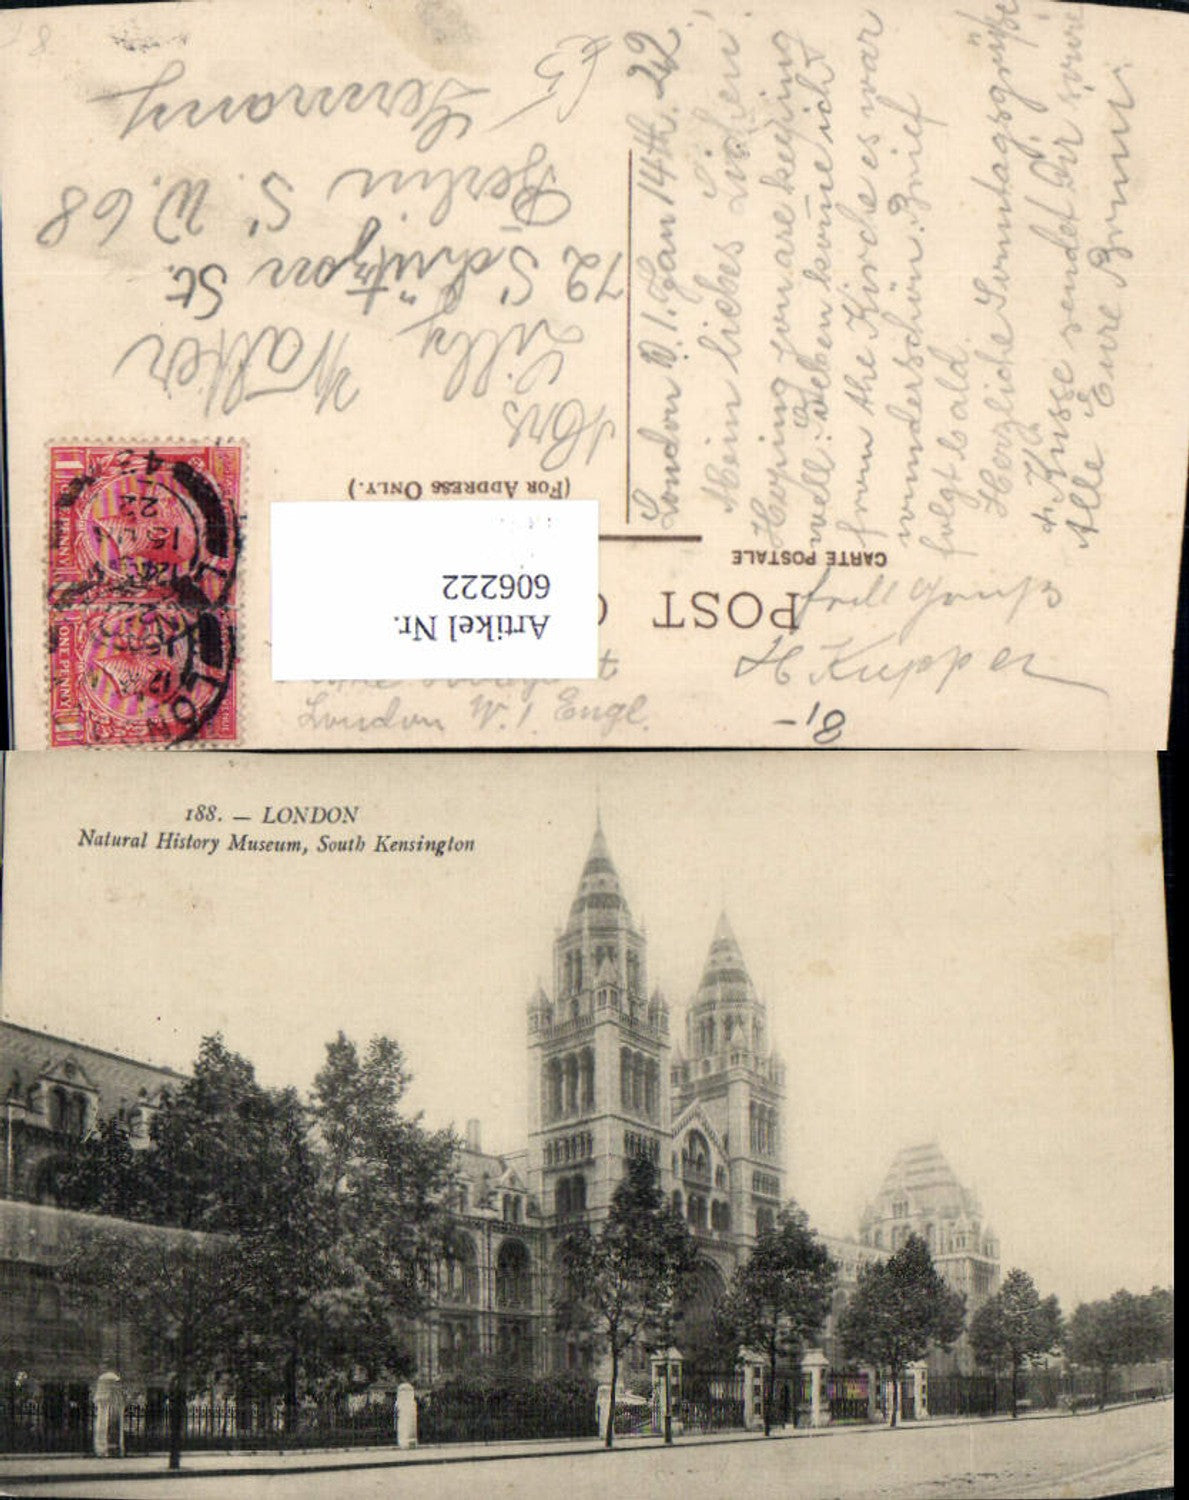 8,-
London W.1 Engl.
H Kupper
POST C
CARTE POSTALE
Artikel Nr.
606222
(FOR ADDRESS ONLY.)
Lilly
Walter
72 Schützen St.
Berlin S.W. 68
Germany
London W.1. Jan 14th. 22.
Mein liebes Lidieni!
Hoping you are keeping
well: Eben komme ich
from the Kirche es war
wunderschön. Brief
folgt bald.
Herzliche Sonntagsgrüße
+ Küsse sendet Dir sowie
Alle Eure
ONE PENNY
ONE PENNY
LON
22
188. — LONDON
Natural History Museum, South Kensington